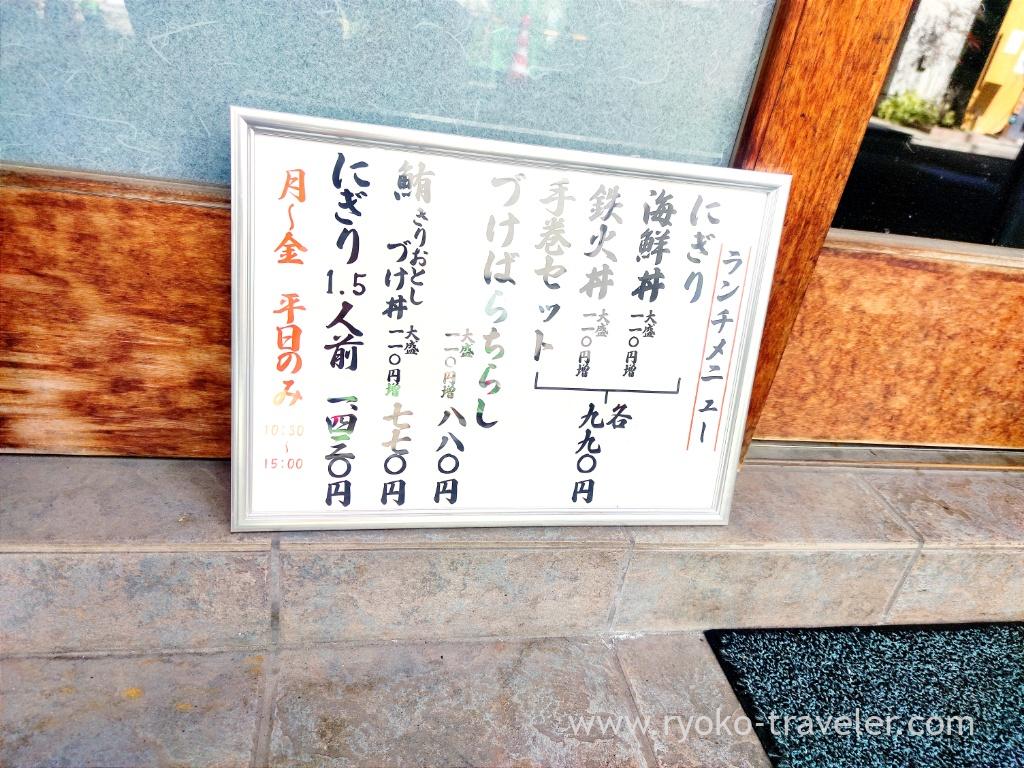 ランチメニュー
にぎり
海鮮丼 大盛一一〇円増
鉄火丼 大盛一一〇円増
手巻セット
各九九〇円
づけばらちらし
大盛一一〇円増 八八〇円
鮪きりおとし
づけ丼 大盛一一〇円増 七七〇円
にぎり1.5人前 一、四三〇円
月〜金 平日のみ
10:30〜15:00
www.ryoko-traveler.com